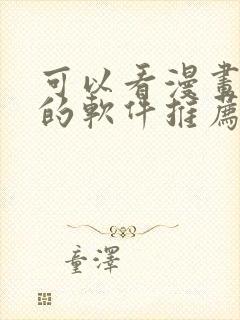 可以看漫畫
的軟件推薦
童澤